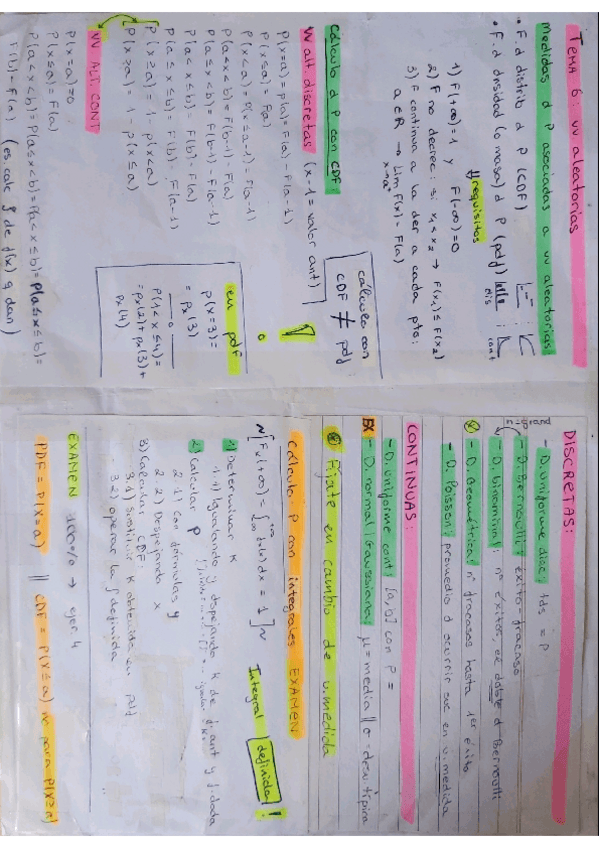 TEMA 6: vv aleatorias
Medidas d P asociadas a vv aleatorias:
• F.d distrib d P (CDF):
• F.d densidad (o masa) d P (pdf)
dis
cont
requisitos
1) F(+∞)=1 y F(-∞)=0
2) F no decrec: si x₁<x₂ → F(x₁)≤F(x₂)
3) F continua a la der a cada pto:
a∈R → lim F(x) = F(a)
x→a⁺
Cálculo d P con CDF:
cálculo con
CDF ≠ pdf
VV alt. discretas (x-1 = valor ant)
P(x=a) = p(a) = F(a) - F(a-1)
P(x≤a) = F(a)
P(x<a) = P(x≤a-1) = F(a-1)
P(a<x<b) = F(b-1) - F(a)
P(a≤x<b) = F(b-1) - F(a-1)
P(a<x≤b) = F(b) - F(a)
P(a≤x≤b) = F(b) - F(a-1)
P(x≥a) = 1 - P(x<a)
P(x>a) = 1 - P(x≤a)
en pdf
P(x=3) =
= Px(3)
P(1<x≤4) =
= Px(2) + Px(3) +
Px(4)
VV ALT. CONT
P(x=a)=0
P(x≤a) = F(a)
P(a<x<b) = P(a≤x<b) = P(a<x≤b) = P(a≤x≤b) =
F(b) - F(a) (es calc ∫ de f(x) q dan)
DISCRETAS:
- D. Uniforme disc: tds = P
- D. Bernouilli: éxito-fracaso
- D. binominal: nº éxitos, el doble d Bernouilli
n-grand
- D. Geométrica: nº fracasos hasta 1er éxito
- D. Poisson: promedio d ocurrir suc en u.medida
CONTINUAS:
- D. uniforme cont: [a,b] con P =
EX - D. normal/Gaussiana: μ=media || σ=desv típica
Fijate en cambio de u.medida
Cálculo P con integrales EXAMEN
Integral definida!
1) Determinar K
1.1) Igualando y despejando K de f.ant y f.dada
2) Calcular P
2.1) Con fórmulas y
2.2) Despejando x
3) Calcular CDF
3.1) Sustituir K obtenida en pdf
3.2) operar la ∫ definida
EXAMEN 100% → ejer. 4
PDF = P(x=a) || CDF = P(x≤a) no para P(x≥a)